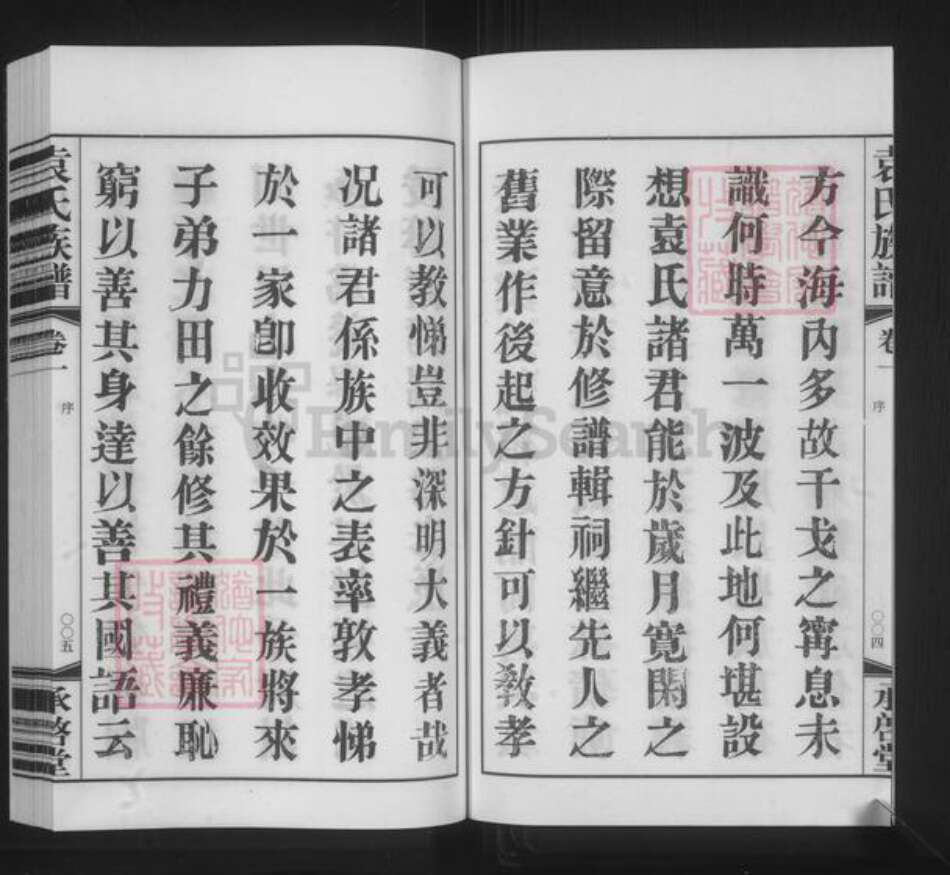 袁氏族譜
卷一
序
〇〇四
承啓堂
方今海內多故干戈之寗息未
識何時萬一波及此地何堪設
想袁氏諸君能於歲月寬閑之
際留意於修譜輯祠繼先人之
舊業作後起之方針可以教孝
可以教悌豈非深明大義者哉
况諸君係族中之表率敦孝悌
於一家卽收效果於一族將來
子弟力田之餘修其禮義廉恥
窮以善其身達以善其國語云
袁氏族譜
卷一
序
〇〇五
承啓堂
FamilySearch